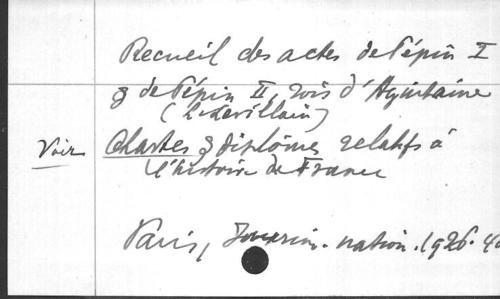 Recueil des actes de Pépin I
& de Pépin II, rois d'Aquitaine
(L. Levillain)
Voir Chartes & diplômes relatifs à
l'histoire de France
Paris, nation. 1926.